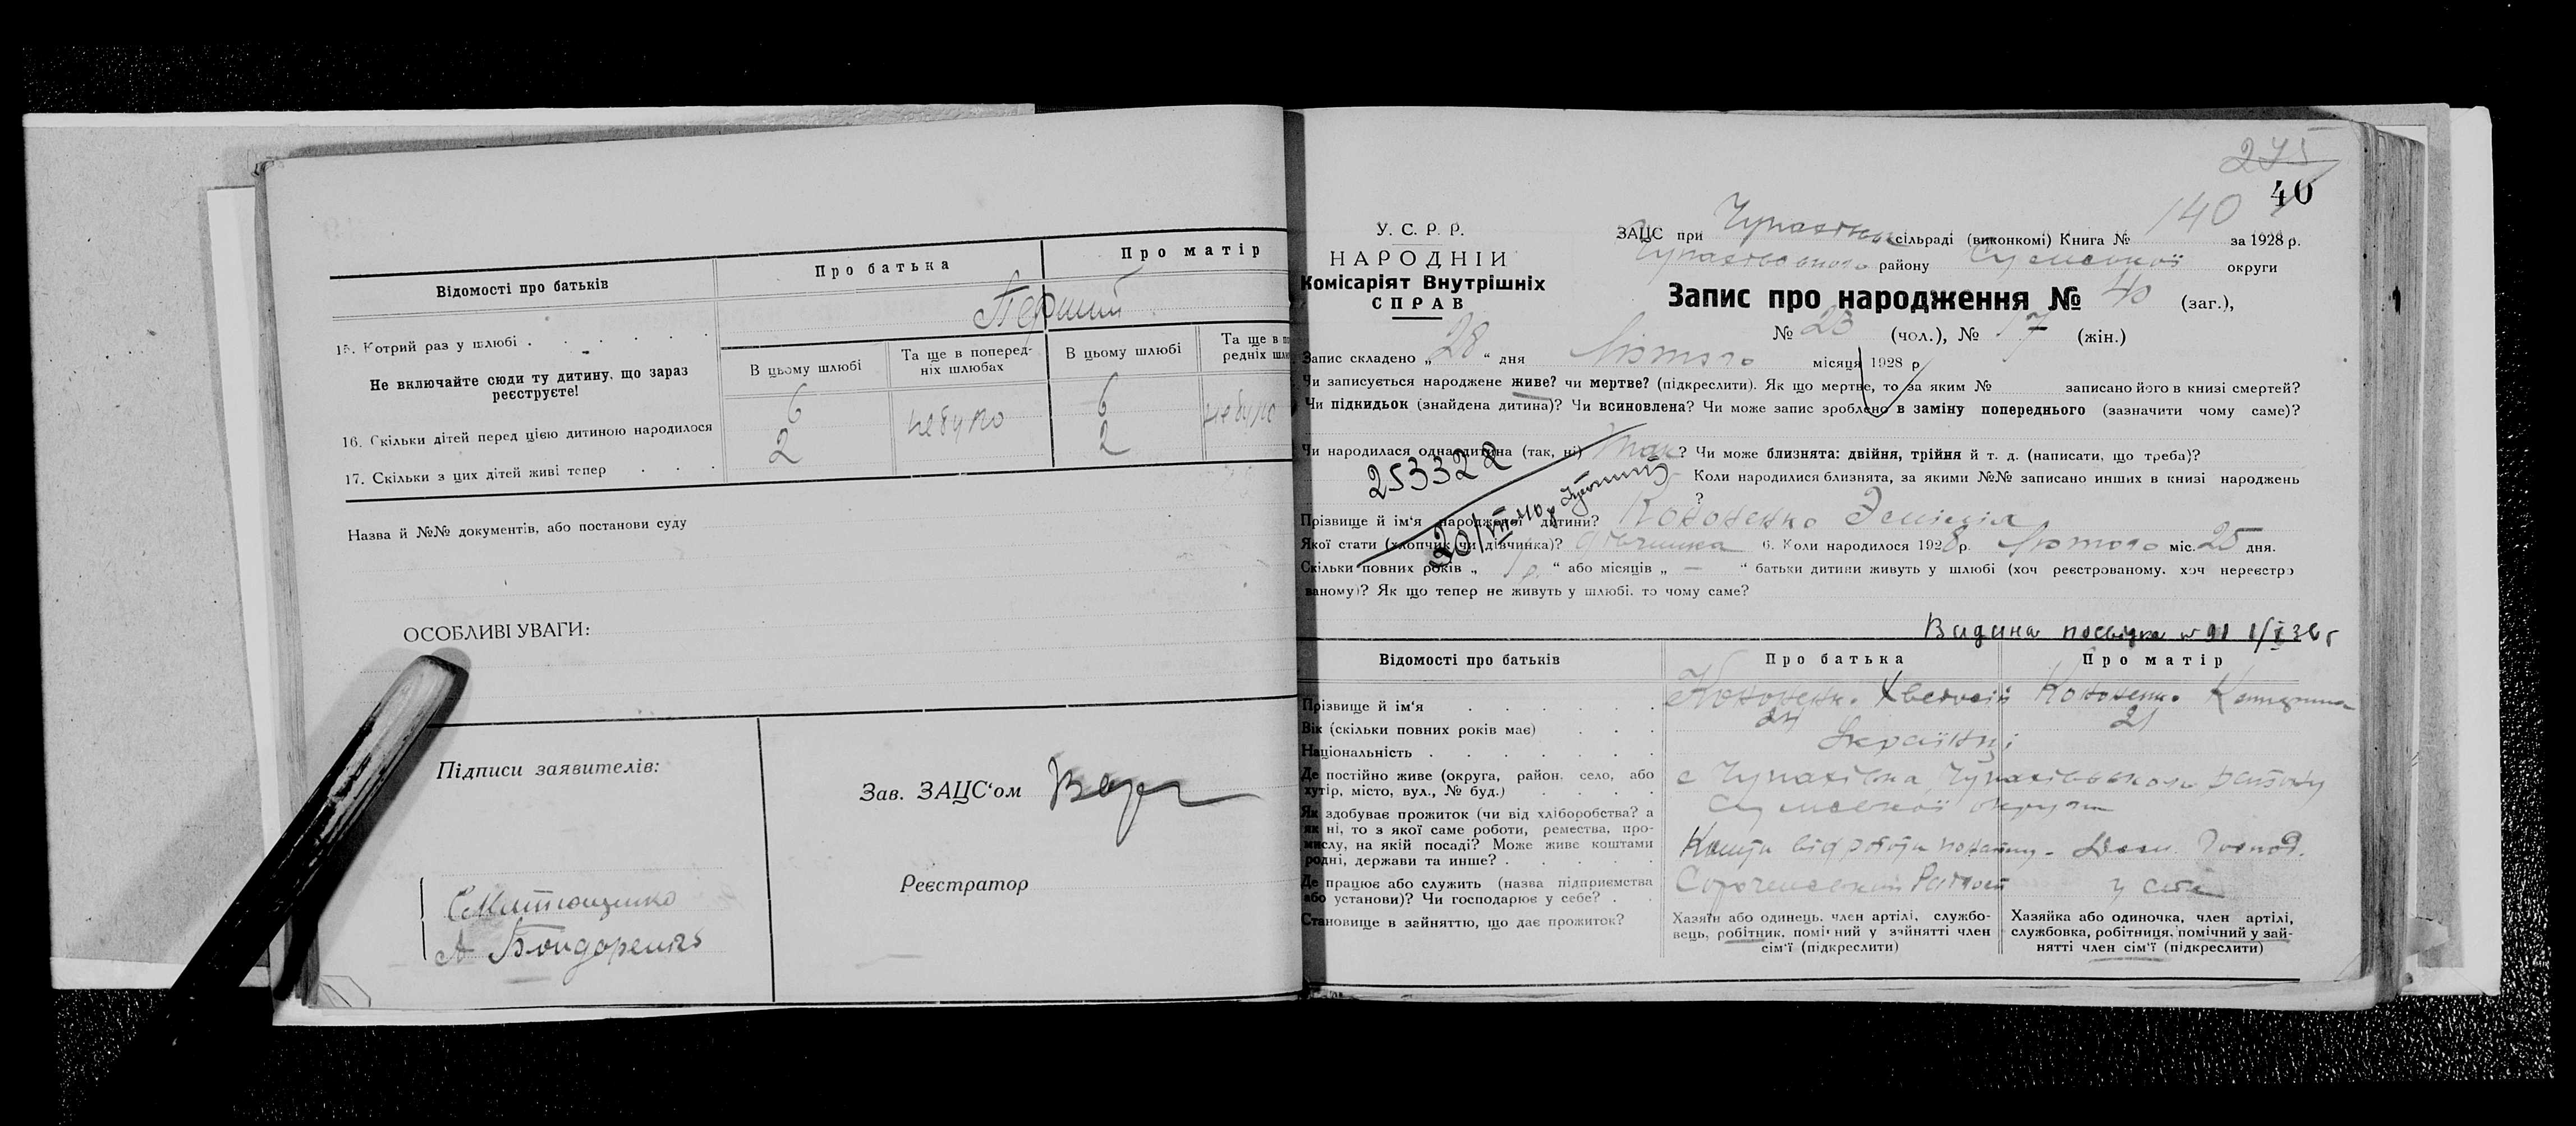 Відомості про батьків
Про батька
Про матір
15. Котрий раз у шлюбі
Перший
Не включайте сюди ту дитину, що зараз
реєструєте!
В цьому шлюбі
Та ще в поперед-
ніх шлюбах
В цьому шлюбі
Та ще в по
редніх шлю
16. Скільки дітей перед цією дитиною народилося
6 небуло 6 небуло
17. Скільки з цих дітей живі тепер
2 2
Назва й №№ документів, або постанови суду
ОСОБЛИВІ УВАГИ:
Підписи заявителів:
Зав. ЗАЦС‘ом
Реєстратор
А Бондаренко
275
40
У. С. Р. Р.
НАРОДНІЙ
Комісаріят Внутрішніх
СПРАВ
ЗАЦС при сільраді (виконкомі) Книга № 140 за 1928 р.
Чупахівського району Сумської округи
Запис про народження № 40 (заг.),
№ 23 (чол.), № 17 (жін.)
Запис складено „ 28 “ дня Лютого місяця 1928 р
Чи записується народжене живе? чи мертве? (підкреслити). Як що мертве, то за яким № записано його в книзі смертей?
Чи підкидьок (знайдена дитина)? Чи всиновлена? Чи може запис зроблено в заміну попереднього (зазначити чому саме)?
Чи народилася одна дитина (так, ні) так? Чи може близнята: двійня, трійня й т. д. (написати, що треба)?
253322
20/VII 40
Коли народилися близнята, за якими №№ записано инших в книзі народжень
?
Прізвище й ім‘я народженої дитини? Кононенко
Якої стати (хлопчик чи дівчинка)? дівчинка 6. Коли народилося 1928 р. Лютого міс. 25 дня.
Скільки повних років „ “ або місяців „ — “ батьки дитини живуть у шлюбі (хоч реєстрованому, хоч нереєстро
ваному)? Як що тепер не живуть у шлюбі, то чому саме?
Відомості про батьків
Про батька
Про матір
Прізвище й ім‘я
Кононенко
Кононенко Катерина
Вік (скільки повних років має)
Національність
Українці
Де постійно живе (округа, район, село, або
хутір, місто, вул., № буд.)
с Чупахівка Чупахівського району
Сумської округи
Як здобуває прожиток (чи від хліборобства? а
як ні, то з якої саме роботи, ремества, про-
мислу, на якій посаді? Може живе коштами
родні, держави та инше?
Де працює або служить (назва підприємства
або установи)? Чи господарює у себе?
Становище в зайняттю, що дає прожиток?
Хазяїн або одинець, член артілі, службо-
вець, робітник, помічний у зайнятті член
сім‘ї (підкреслити)
Хазяйка або одиночка, член артілі,
службовка, робітниця, помічний у зай-
нятті член сім‘ї (підкреслити)